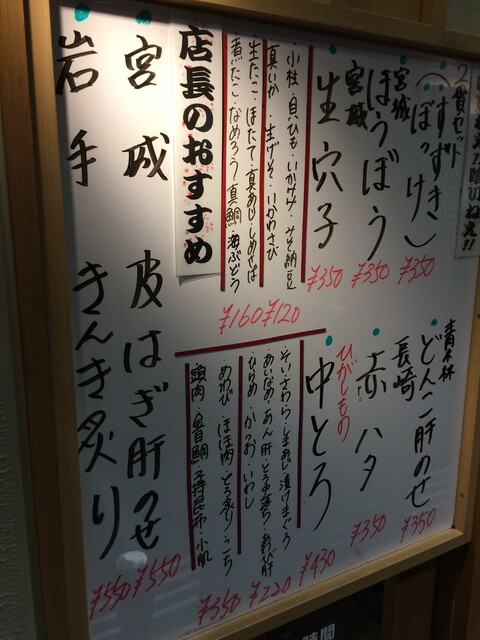 2貫セット
(すずき
ぼっけ)
¥350
宮城
ほうぼう
¥350
宮城
生穴子
¥350
小柱・貝ひも・いかミミ・みそ納豆
真いか・生げそ・いかわさび
¥120
生たこ・ほたて・真あじ・しめさば
煮たこ・なめろう・真鯛・海ぶどう
¥160
店長のおすすめ
宮城 皮はぎ肝のせ
¥550
岩手 きんき炙り
¥550
青森
どんこ肝のせ
¥350
長崎
赤ハタ
¥350
ひがしもの
中とろ
¥430
そい・さわら・しまあじ・漬けまぐろ
あいなめ・あん肝・とろ中落ち・あわび肝
ひらめ・かつお・いわし
¥220
あわび・ほほ肉・とろ炙り・こち
頭肉・金目鯛・子持昆布・小肌
¥350